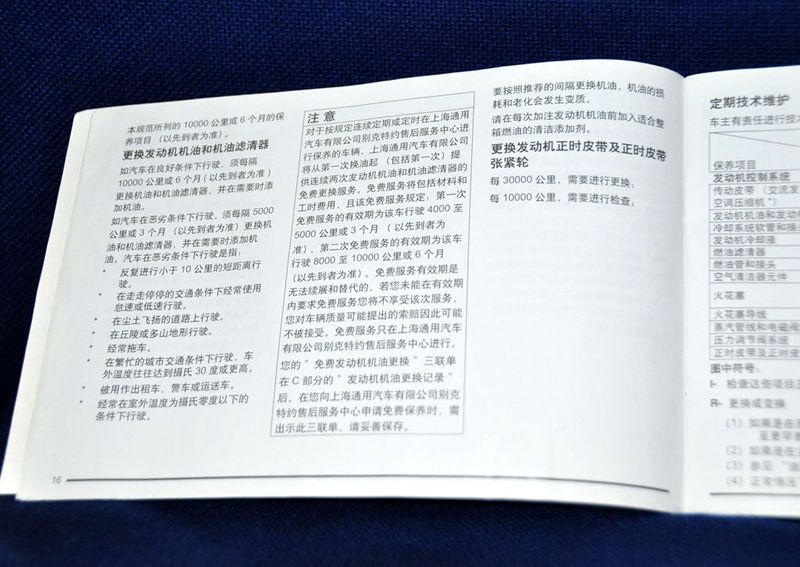 本规范所列的 10000 公里或 6 个月的保
养项目（以先到者为准）。
更换发动机机油和机油滤清器
如汽车在良好条件下行驶，须每隔
10000 公里或 6 个月（以先到者为准）
更换机油和机油滤清器，并在需要时添
加机油。
如汽车在恶劣条件下行驶，须每隔 5000
公里或 3 个月（以先到者为准）更换机
油和机油滤清器，并在需要时添加机
油。汽车在恶劣条件下行驶是指：
* 反复进行小于 10 公里的短距离行
驶。
* 在走走停停的交通条件下经常使用
怠速或低速行驶。
* 在尘土飞扬的道路上行驶。
* 在丘陵或多山地形行驶。
* 经常拖车。
* 在繁忙的城市交通条件下行驶，车
外温度往往达到摄氏 30 度或更高。
* 被用作出租车、警车或运送车。
* 经常在室外温度为摄氏零度以下的
条件下行驶。
16
注意
对于按规定连续定期或定时在上海通用
汽车有限公司别克特约售后服务中心进
行保养的车辆，上海通用汽车有限公司
将从第一次换油起（包括第一次）提
供连续两次发动机机油和机油滤清器的
免费更换服务。免费服务将包括材料和
工时费用，且该免费服务规定：第一次
免费服务的有效期为该车行驶 4000 至
5000 公里或 3 个月（以先到者为
准），第二次免费服务的有效期为该车
行驶 8000 至 10000 公里或 6 个月
（以先到者为准）。免费服务有效期是
无法续展和替代的，若您未能在有效期
内要求免费服务您将不享受该次服务，
您对车辆质量可能提出的索赔因此可能
不被接受。免费服务只在上海通用汽车
有限公司别克特约售后服务中心进行。
您的＂免费发动机机油更换＂三联单
在 C 部分的＂发动机机油更换记录＂
后。在您向上海通用汽车有限公司别克
特约售后服务中心申请免费保养时，需
出示此三联单，请妥善保存。
要按照推荐的间隔更换机油，机油的损
耗和老化会发生变质。
请在每次加注发动机机油前加入适合整
箱燃油的清洁添加剂。
更换发动机正时皮带及正时皮带
张紧轮
每 30000 公里，需要进行更换；
每 10000 公里，需要进行检查；
定期技术维护
车主有责任进行技术
保养项目
发动机控制系统
传动皮带（交流发
空调压缩机*）
发动机机油和发动
冷却系统软管和接头
发动机冷却液
燃油滤清器
燃油管和接头
空气清洁器元件
火花塞
火花塞导线
蒸汽管线和电磁阀
压力调节阀系统
正时皮带及正时皮
图中符号：
I- 检查这些项目及
R- 更换或变换
（1）如果是在
至更早
（2）如果是在
（3）参见＂油
（4）正常情况